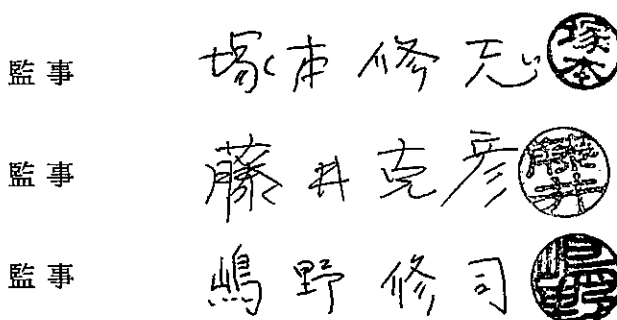 監事 塚本修 塚本
監事 藤井克彦 藤井
監事 嶋野修司 嶋野